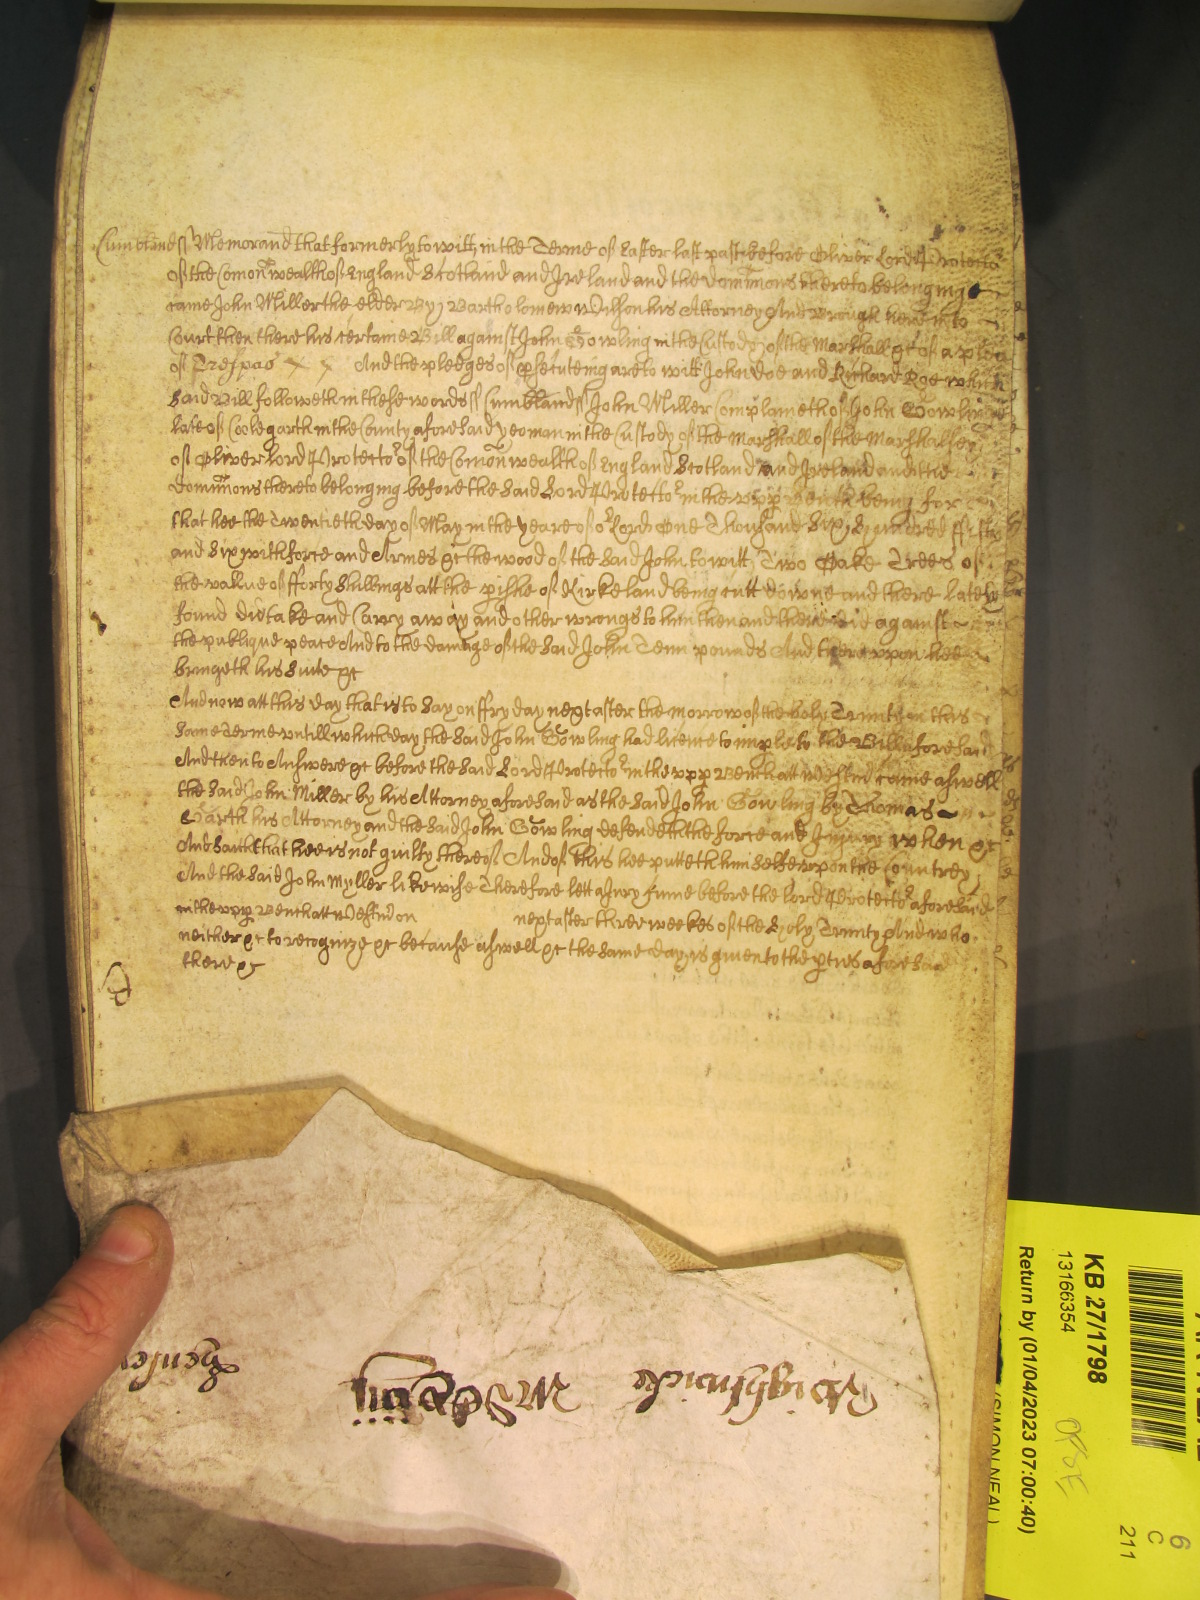 Cumbland ss Memorand that formerly to witt in the Terme of Easter last past before Oliver Lord Protector
of the Comonwealth of England Scotland and Ireland and the dominions thereto belonging
came John Miller the elder By Bartholomew Wilson his Attorney And Brought here into
Court then there his certaine Bill against John Gowling in the Custody of the Marshall &c of a plea
of Trespas And the pledges of psecuteing are to witt John Doe and Richard Roe which
said Bill followeth in these words ss Cumbland ss John Miller Complaineth of John Gowling
late of in the County aforesaid yeoman in the Custody of the Marshall of the Marshalsey
of Oliver Lord Protector of the Comonwealth of England Scotland and Ireland and the
dominions thereto belonging before the said Lord Protector in the upp bench being for
that hee the Twentieth day of May in the yeare of or Lord One Thousand Six Hundred ffifty
and Six with force and Armes &c the wood of the said John to witt Two Oake Trees of
the vallue of fforty Shillings att the pishe of Kirkeland being cutt downe and there lately
found did take and Carry away and other wrongs to him then and there did against
the publique peace And to the damage of the said John Tenn pounds And thereuppon hee
bringeth his Suite &c
And now att this day that is to say on ffryday next after the morrow of the holy Trinity in this
same Terme untill which day the said John Gowling had licence to imple to the Bill aforesaid
And then to Answere &c before the said Lord Protector in the upp Bench att Westm came aswell
the said John Miller by his Attorney aforesaid as the said John Gowling by Thomas
Garth his Attorney and the said John Gowling defendeth the force and Injury when &c
And saith that hee is not guilty thereof And of this hee putteth himselfe upon the Countrey
And the said John Myller likewise Therefore lett a Jury Come before the Lord Protector aforesaid
in the upp Bench att Westm on next after three weekes of the Holy Trinity And who
neither &c to recognize &c because aswell &c the same day is given to the pties aforesaid
there &c
Wightwicke
Henley
KB 27/1798
13166354
Return by (01/04/2023 07:00:40)
(SIMON NEAL)
6
C
211